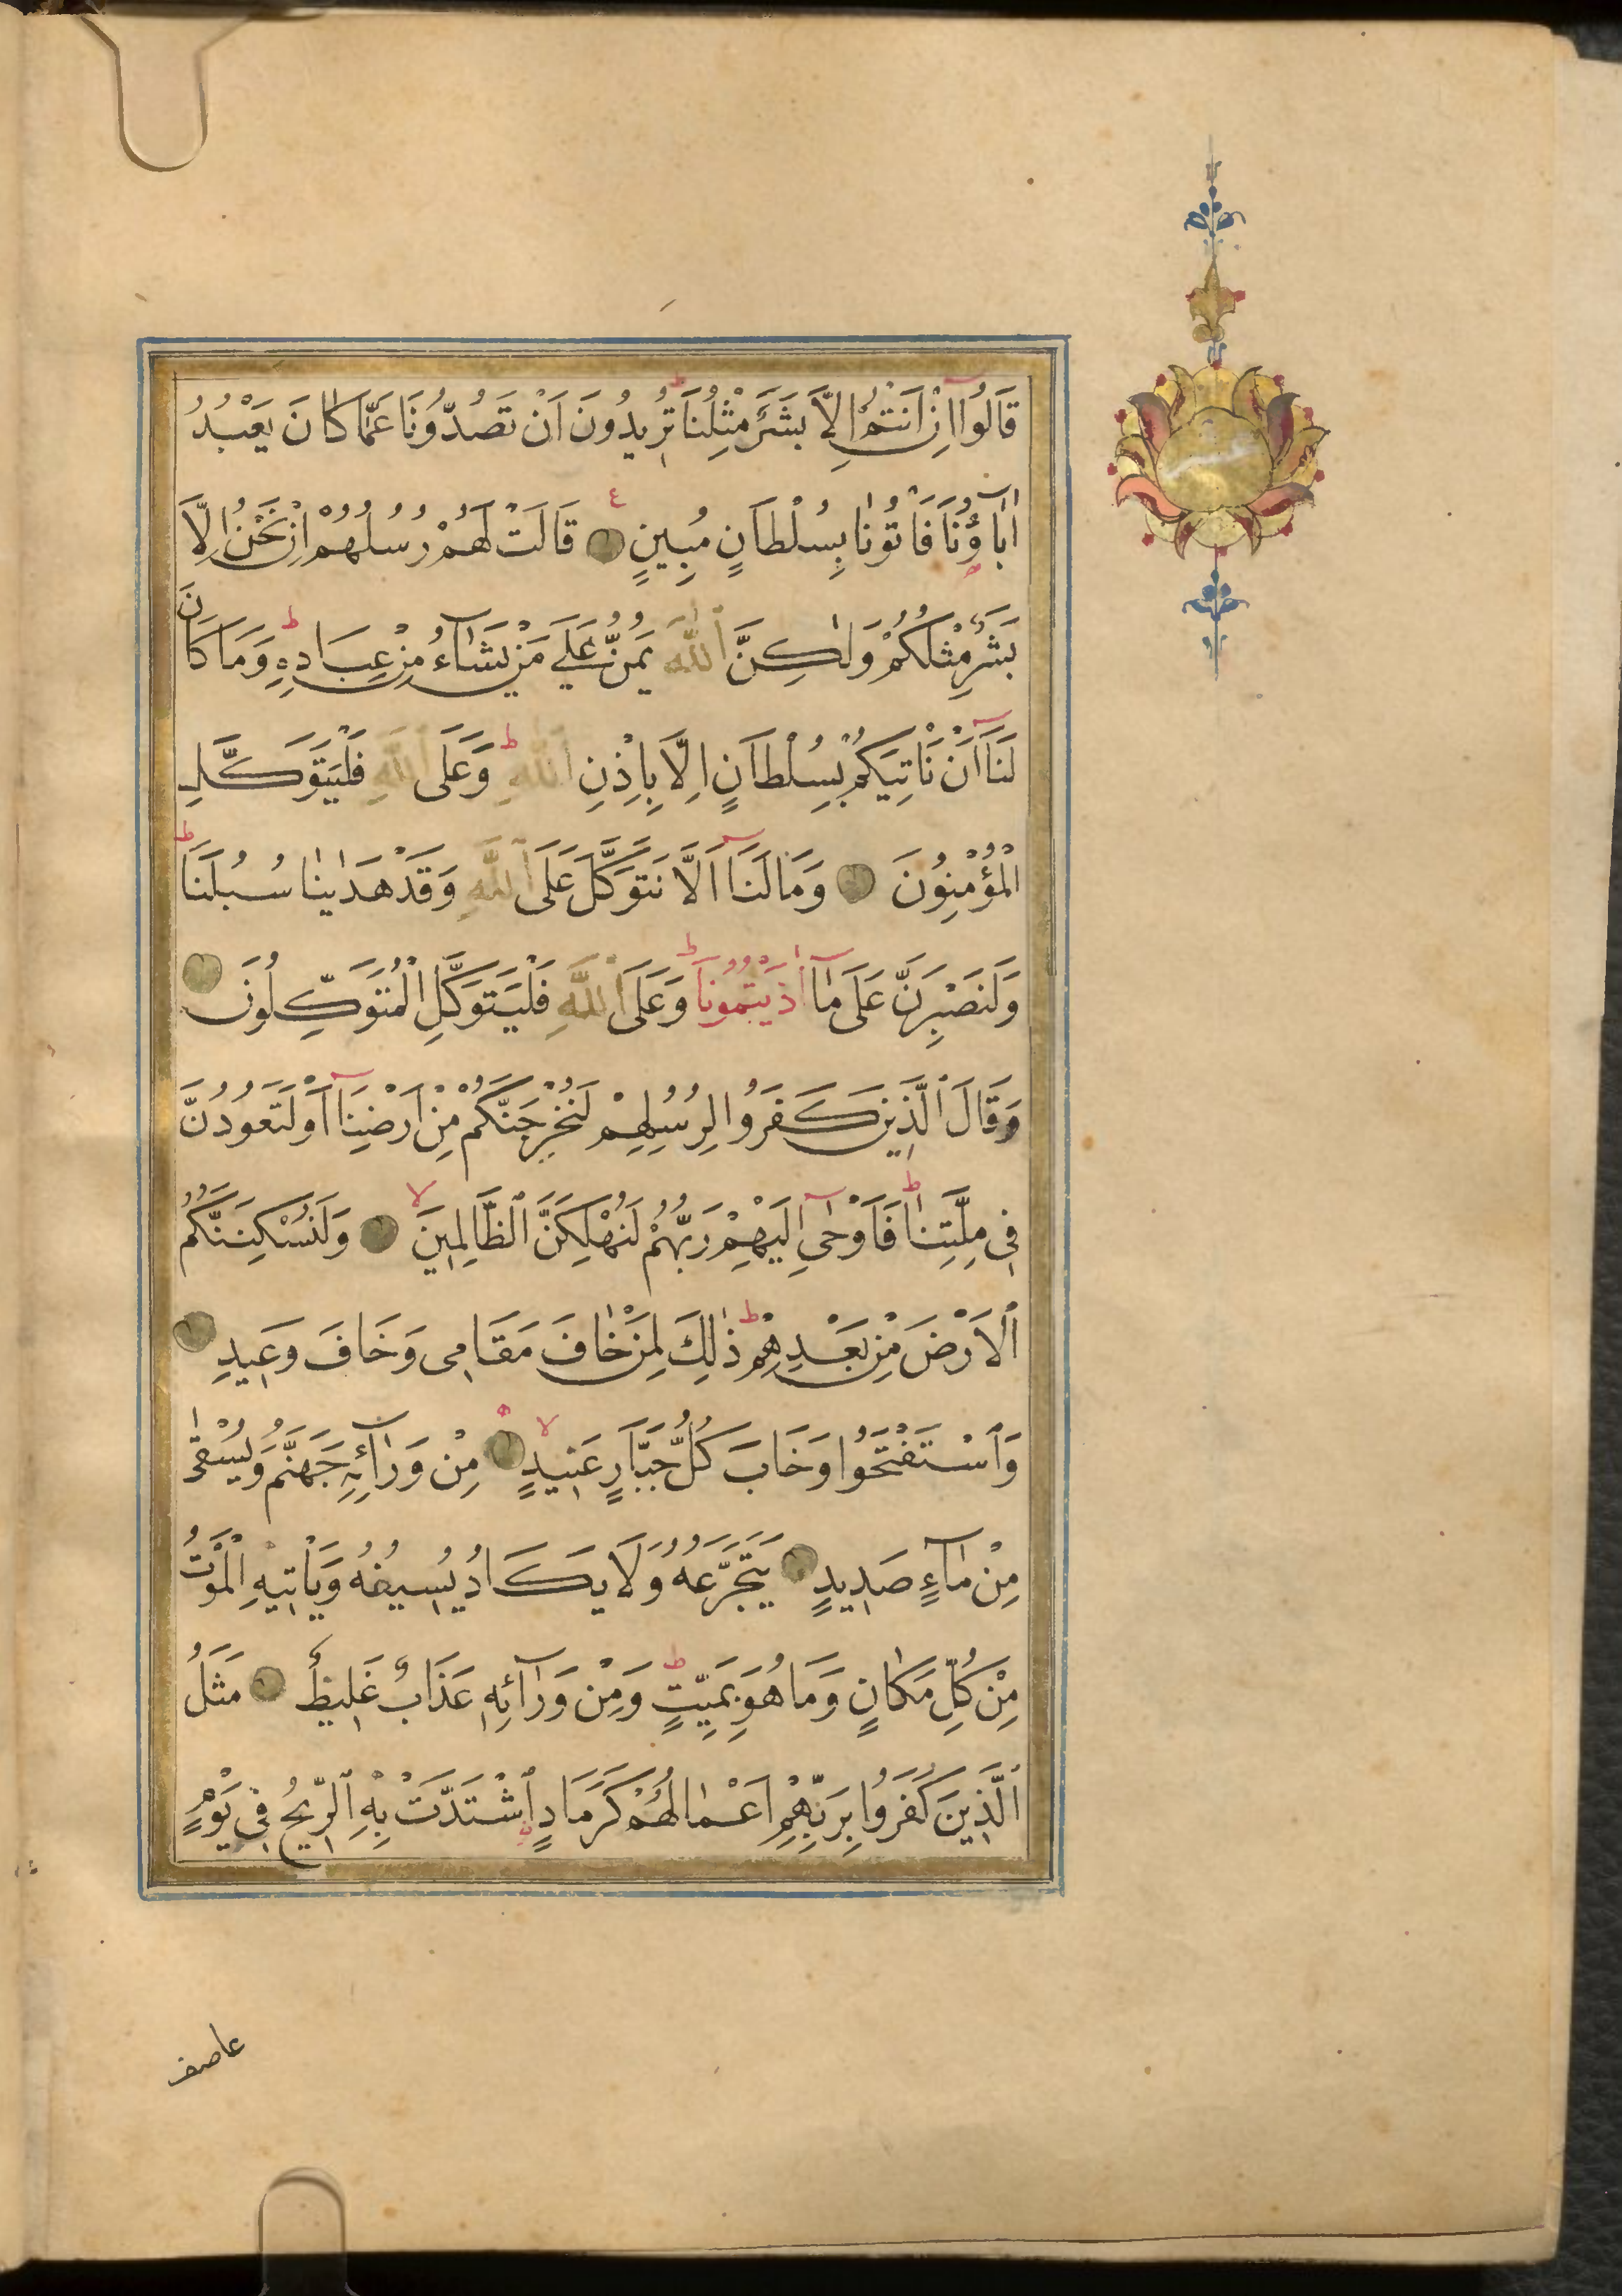 قَالُوٓا اِنْ اَنْتُمْ اِلَّا بَشَرٌ مِثْلُنَا ط تُرِيدُونَ اَنْ تَصُدُّونَا عَمَّا كَانَ يَعْبُدُ
اٰبَآؤُنَا فَاْتُونَا بِسُلْطَانٍ مُبِينٍ ع قَالَتْ لَهُمْ رُسُلُهُمْ اِنْ نَحْنُ اِلَّا
بَشَرٌ مِثْلُكُمْ وَلٰكِنَّ ٱللّٰهَ يَمُنُّ عَلٰى مَنْ يَشَآءُ مِنْ عِبَادِهِ ط وَمَا كَانَ
لَنَآ اَنْ نَاْتِيَكُمْ بِسُلْطَانٍ اِلَّا بِاِذْنِ ٱللّٰهِ ط وَعَلَى ٱللّٰهِ فَلْيَتَوَكَّلِ
الْمُؤْمِنُونَ وَمَا لَنَآ اَلَّا نَتَوَكَّلَ عَلَى ٱللّٰهِ وَقَدْ هَدٰينَا سُبُلَنَا ط
وَلَنَصْبِرَنَّ عَلٰى مَآ اٰذَيْتُمُونَا ط وَعَلَى ٱللّٰهِ فَلْيَتَوَكَّلِ الْمُتَوَكِّلُونَ
وَقَالَ ٱلَّذِينَ كَفَرُوا لِرُسُلِهِمْ لَنُخْرِجَنَّكُمْ مِنْ اَرْضِنَآ اَوْ لَتَعُودُنَّ
فِى مِلَّتِنَا ط فَاَوْحٰىٓ اِلَيْهِمْ رَبُّهُمْ لَنُهْلِكَنَّ ٱلظَّالِمِينَ لا وَلَنُسْكِنَنَّكُمُ
ٱلْاَرْضَ مِنْ بَعْدِهِمْ ط ذٰلِكَ لِمَنْ خَافَ مَقَامِى وَخَافَ وَعِيدِ
وَٱسْتَفْتَحُوا وَخَابَ كُلُّ جَبَّارٍ عَنِيدٍ لا مِنْ وَرَآئِهِ جَهَنَّمُ وَيُسْقٰى
مِنْ مَآءٍ صَدِيدٍ يَتَجَرَّعُهُ وَلَا يَكَادُ يُسِيغُهُ وَيَاْتِيهِ الْمَوْتُ
مِنْ كُلِّ مَكَانٍ وَمَا هُوَ بِمَيِّتٍ ط وَمِنْ وَرَآئِهِ عَذَابٌ غَلِيظٌ مَثَلُ
ٱلَّذِينَ كَفَرُوا بِرَبِّهِمْ اَعْمَالُهُمْ كَرَمَادٍ ٱشْتَدَّتْ بِهِ ٱلرِّيحُ فِى يَوْمٍ
عاصف